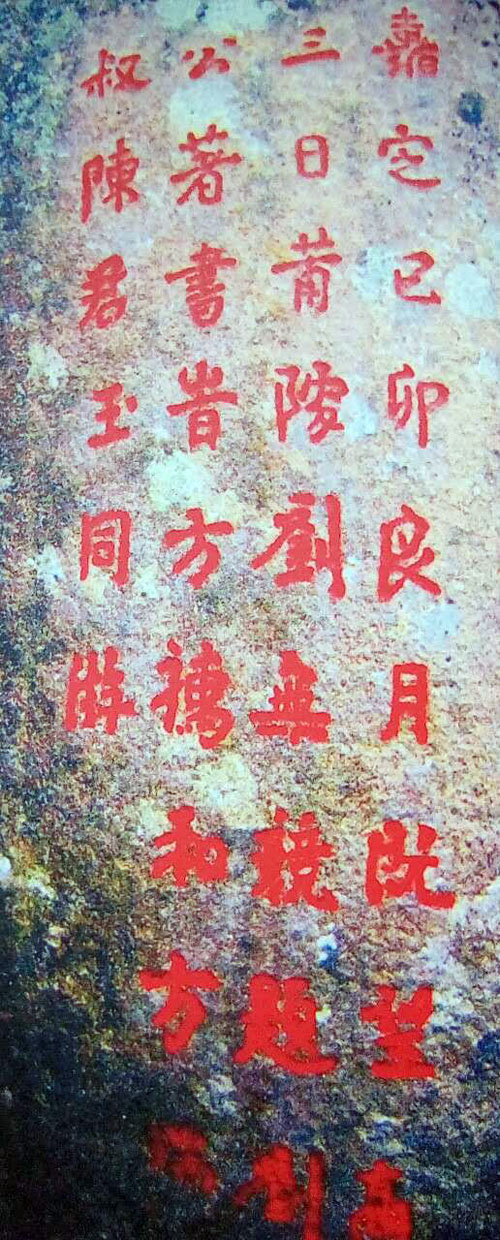 嘉定己卯良月既望
三日莆陽劉無競題劉
公著書旹方禱和方
叔陳君玉同游